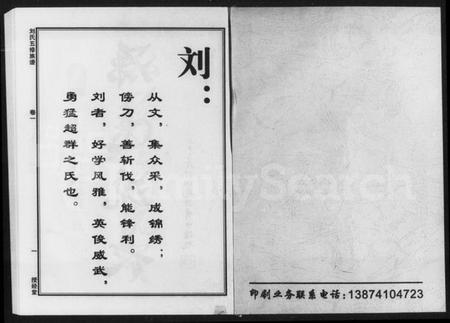 刘：
从文，集众采，成锦绣；
傍刀，善斩伐，能锋利。
刘者，好学风雅，英俊威武，
勇猛超群之氏也。
刘氏五修族谱
卷一
一
授经堂
FamilySearch
印刷业务联系电话：13874104723